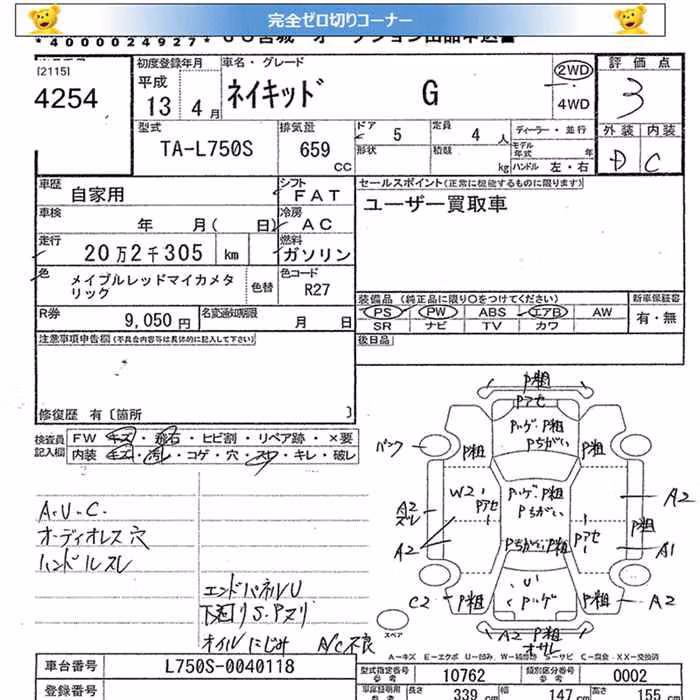 完全ゼロ切りコーナー
*4000024927*
[2115]
4254
初度登録年月
平成
13 4月
車名・グレード
ネイキッド G
2WD
4WD
評価点
3
外装 内装
D C
型式
TA-L750S
排気量
659
CC
ドア
5
定員
4 人
形状
積載
kg
ディーラー・並行
モデル年式 年
ハンドル 左・右
車歴
自家用
シフト
FAT
車検
年 月( 日)
冷房
AC
走行
20万2千305 km
燃料
ガソリン
色
メイプルレッドマイカメタリック
色替
色コード
R27
R券
9,050円
名変通知期限
月 日
セールスポイント(正常に機能するものに限ります)
ユーザー買取車
装備品(純正品に限り○をつけてください)
PS PW ABS エアB AW
SR ナビ TV カワ
新車保証書
有・無
注意事項申告欄(不具合内容等は具体的に記入して下さい)
後日品
修復歴 有〔箇所 〕
検査員記入欄
FW キズ・飛石・ヒビ割・リペア跡・×要
内装 キズ・汚レ・コゲ・穴・スレ・キレ・破レ
A・U・C・
オーディオレス穴
ハンドルスレ
エンドパネルU
下廻りS・Pヌリ
オイルにじみ A/C不良
P粗
Pアセ
P粗
P粗
Pちがい
パンク
P粗
A2
スレ
W2
Pアセ
P粗
Pちがい
A2
P粗
A2
Pアセ
A1
Pちがい P粗
C2
P粗
U1
P粗
A2
スペア
A2 P粗
A-キズ E-エクボ U-凹み
XX-交換済
車台番号
L750S-0040118
型式指定番号
参考
10762
類別区分番号
参考
0002
登録番号
長さ
339 cm
幅
147 cm
高さ
155 cm